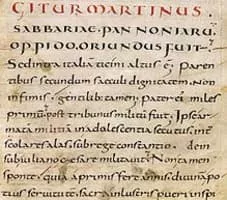 GITUR MARTINUS
SABBARIAE PANNONIARU
OPPIDO ORIUNDUS FUIT
Sed intra italiā ticini altus ē; paren
tibus secundum saeculi dignitatem non
infimis, gentilib; tamen. pater ei miles
primū, post tribunus militū fuit; Ipse ar
matā militiā in adolescentia secutus, int
scolares alas, sub rege constantio. dein
sub iuliano caesare militavit; Non tamen
sponte, quia a primis fere annis, divinā po
tius servitutē, sacra inlustris pueri insp